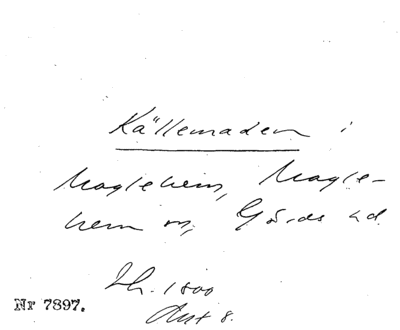 Källemaden i
Maglehem, Magle-
hem sn, Gärds hd
Lh. 1800
Akt 8.
Nr 7897.